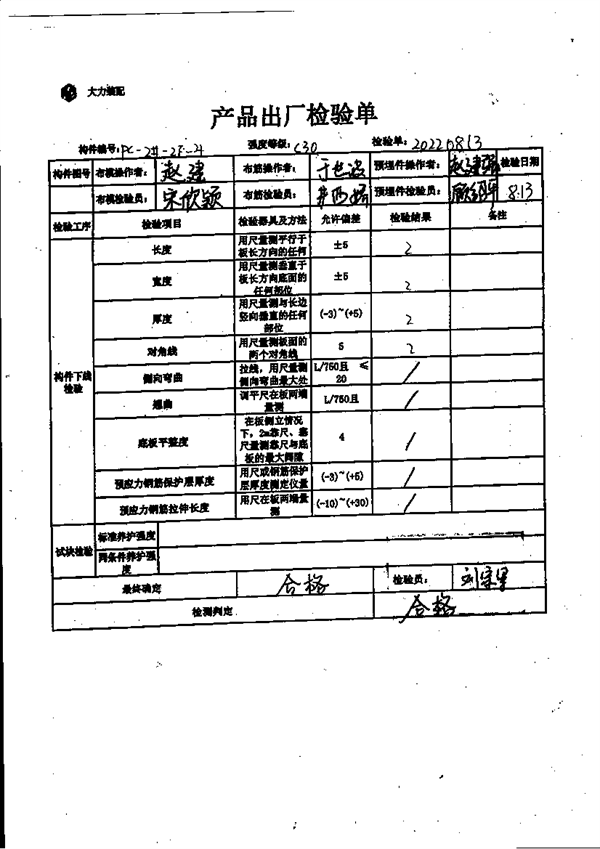 大力装配
产品出厂检验单
构件编号: PC-2#-2F-4 强度等级: C30 检验单: 20220813
构件图号 布模操作者: 赵建 布筋操作者: 预埋件操作者: 赵建强 检验日期
布模检验员: 宋欣颖 布筋检验员: 预埋件检验员: 8.13
检验工序 检验项目 检验器具及方法 允许偏差 检验结果 备注
构件下线检验
长度 用尺量测平行于板长方向的任何 ±5 2
宽度 用尺量测垂直于板长方向底面的任何部位 ±5 2
厚度 用尺量测与长边竖向垂直的任何部位 (-3)~(+5) 2
对角线 用尺量测板面的两个对角线 5 2
侧向弯曲 拉线,用尺量测侧向弯曲最大处 L/750且 ≤20 /
翘曲 调平尺在板两端量测 L/750且 /
底板平整度 在板侧立情况下,2m靠尺、塞尺量测靠尺与底板的最大间隙 4 /
预应力钢筋保护层厚度 用尺或钢筋保护层厚度测定仪量 (-3)~(+5) /
预应力钢筋拉伸长度 用尺在板两端量测 (-10)~(+30) /
试块检验 标准养护强度
同条件养护强度
最终确定 合格 检验员:
检测判定 合格